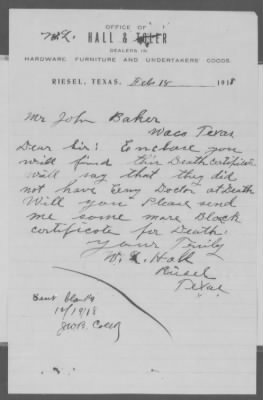 OFFICE OF
W.L. HALL & TYLER
DEALERS IN
HARDWARE, FURNITURE AND UNDERTAKERS' GOODS.
RIESEL, TEXAS, Feb 18 1918
Mr John Baker
Waco Texas
Dear Sir: Enclose you
will find this Death certificate
will say that they did
not have eny Doctor at Death
Will you Please send
me some more Black
certificate for Death.
your Truly
W. L. Hall
Riesel
Texas
Sent blanks
19/18